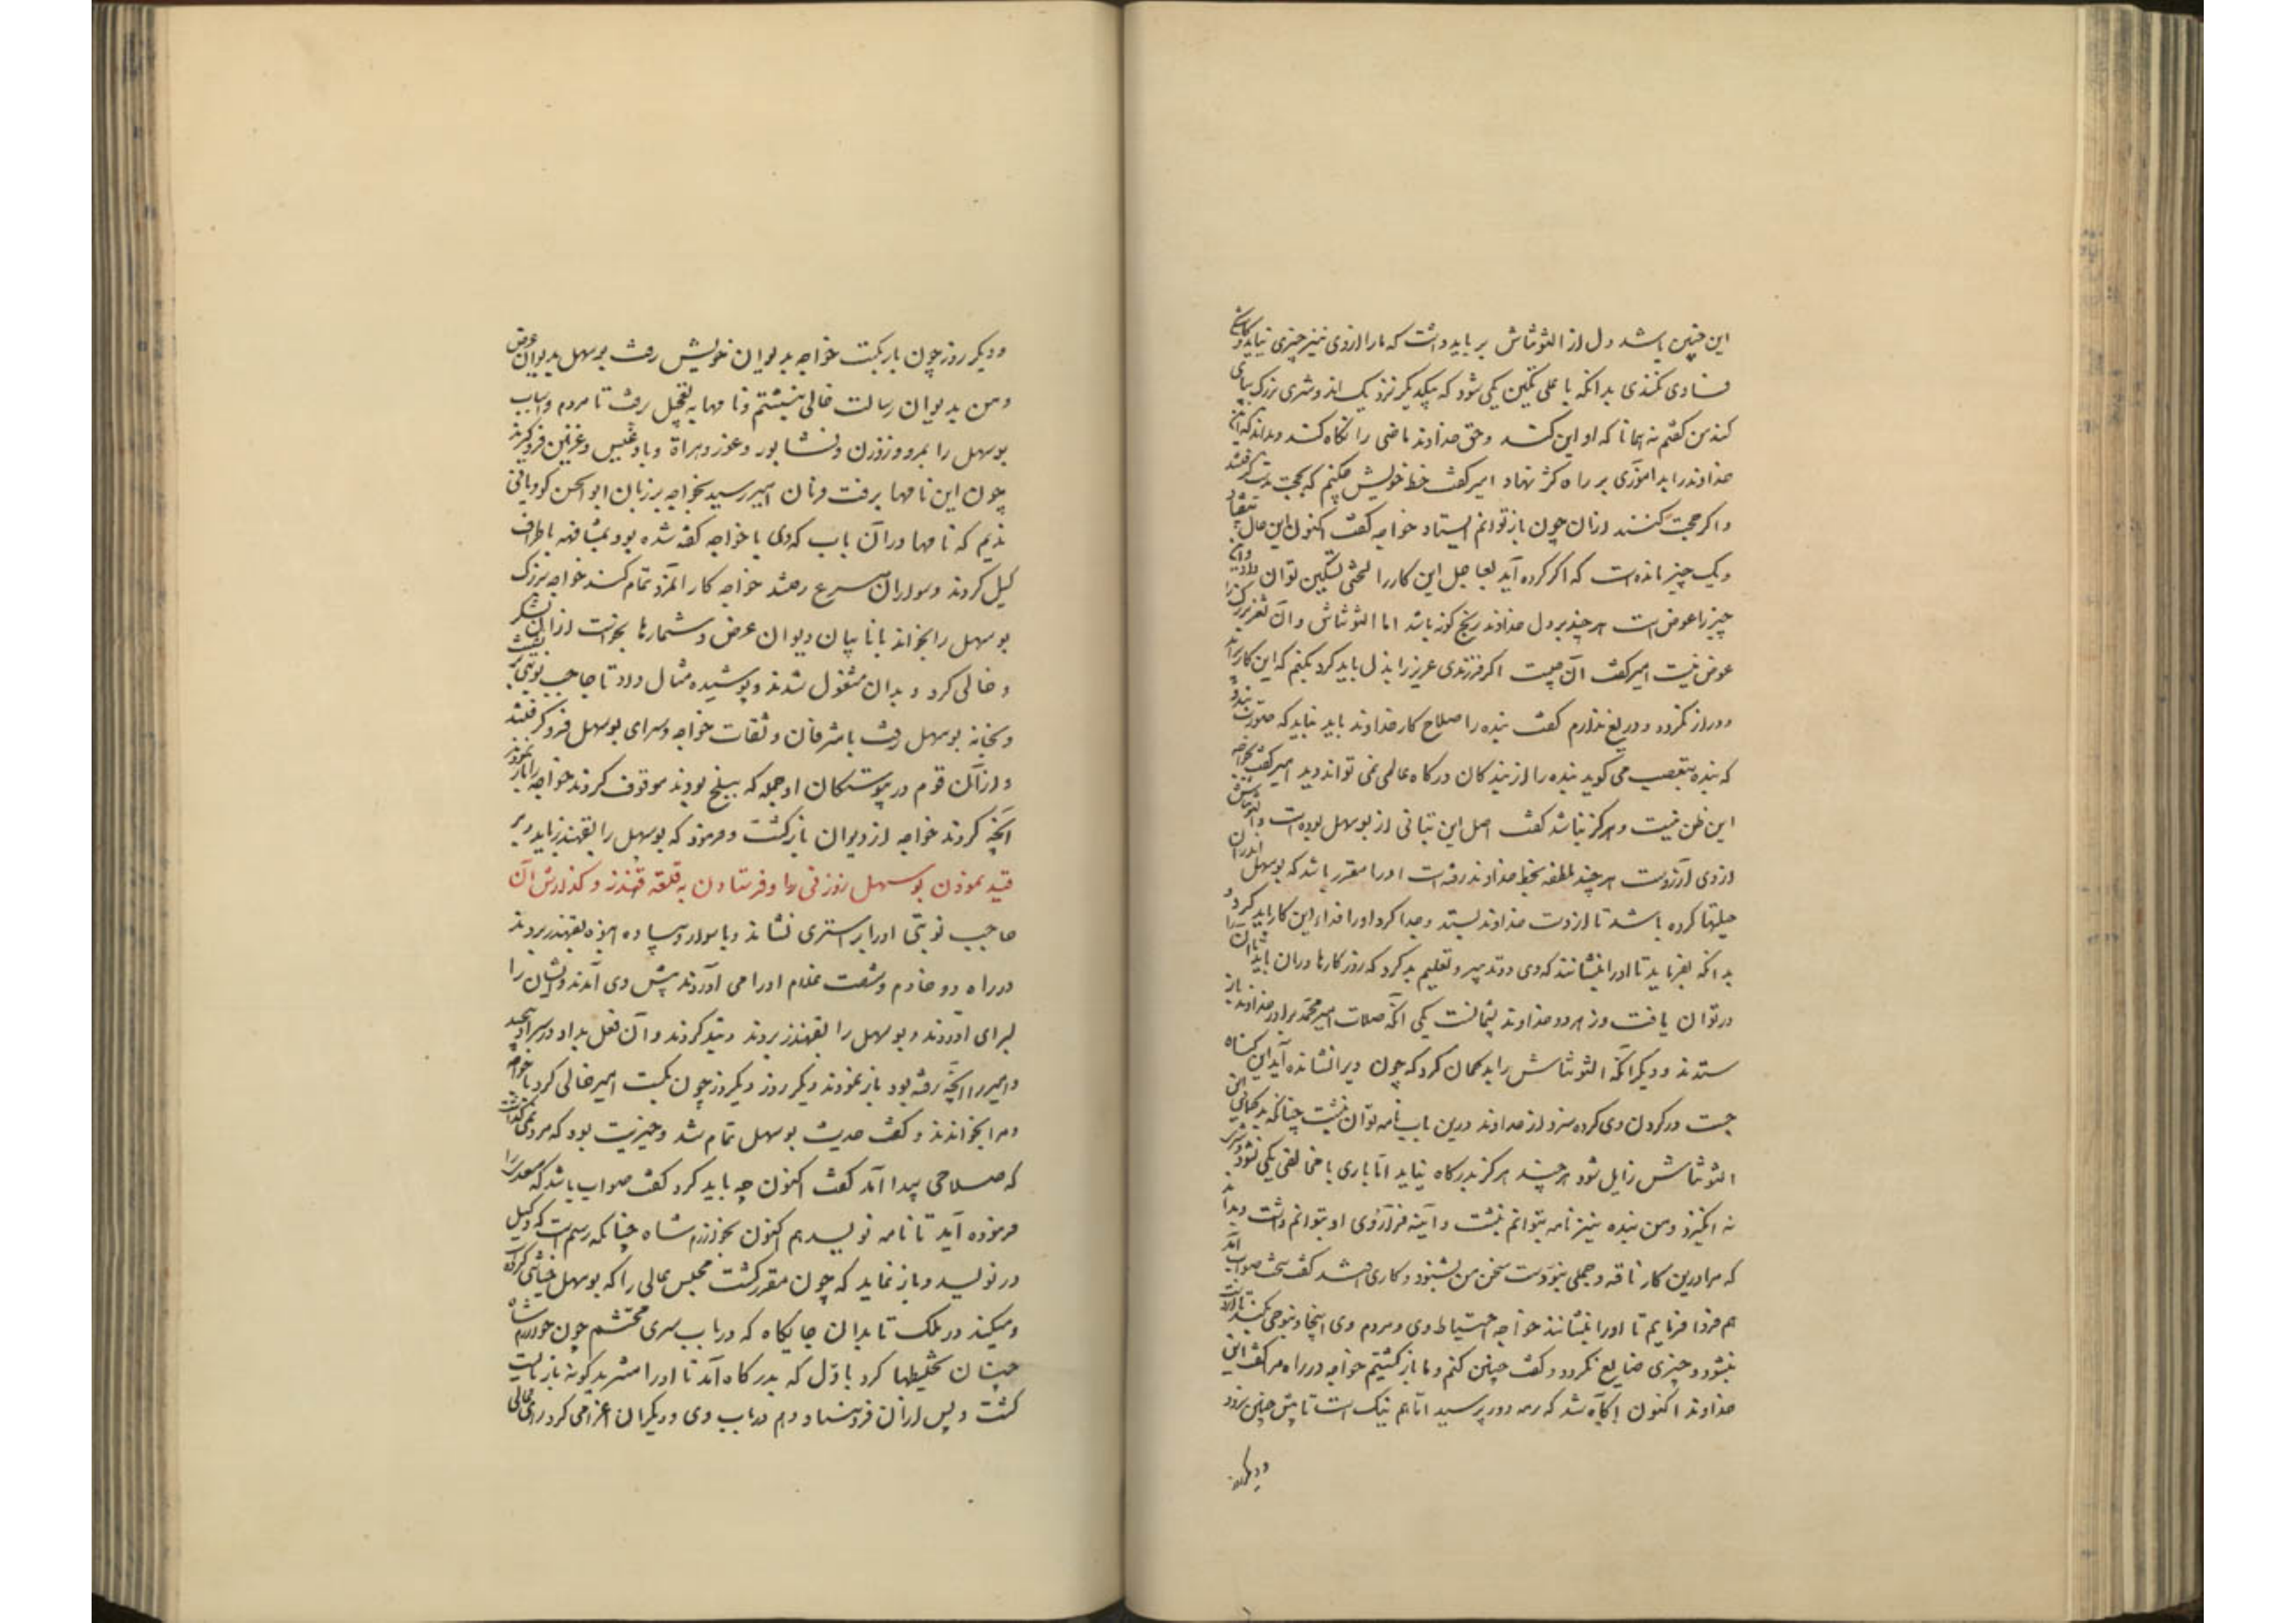 این چنین باشد دل از التونتاش بر باید داشت که ما را از وی نیز چیزی نیاید و کاشکی
فسادی نکندی بدانکه با علی تگین یکی شود که بیکدیگر نزدیک اند و شری بزرگ بپای
کند من گفتم نه همانا که او این کند و حق خداوند ماضی را نگاه کند و بداند که این
خداوند را بد آموزی بر راه کژ نهاد امیر گفت خط خویش چکنم که بحجت بدست گرفتند
و اگر حجت کنند از آن چون باز توانم ایستاد خواجه گفت اکنون این حال بیفتاد
و یک چیز مانده است که اگر کرده آید بعاجل این کار را لختی تسکین توان داد و این
چیز را عوض است هر چند بر دل خداوند رنج گونه باشد اما التونتاش و آن ثغر بزرگ را
عوض نیست امیر گفت آن چیست اگر فرزندی عزیز را بذل باید کرد بکنم که این کار برآید
و دراز نگردد و دریغ ندارم گفت بنده را صلاح کار خداوند باید نباید که صورت بندد
که بنده بتعصب می گوید بنده را از بندگان درگاه عالی نمی تواند دید امیر گفت بخواجه
این ظن نیست و هرگز نباشد گفت اصل این تباهی از بوسهل بوده است و التونتاش
از وی آزرده است هر چند ملطفه بخط خداوند رفته است او را مقرر باشد که بوسهل اندران
حیلتها کرده باشد تا از دست خداوند بستد و جدا کرد او را فداء این کار باید کرد و
بدانکه بفرماید تا او را بنشانند که وی دو تدبیر و تعلیم بد کرد که روزگارها در آن باید تا آن را
در توان یافت و ز هر دو خداوند پشیمانست یکی آنکه صلات امیر محمد برادر خداوند باز
ستدند و دیگر آنکه التونتاش را بد گمان کرد که چون ویرا نشانده آید این گناه
جست در گردن وی کرده شود از خداوند درین باب نامه توان نبشت چنانکه بدگمانی
التونتاش زایل شود هر چند هرگز بدرگاه نیاید اما باری با مخالفی یکی نشود و شری
نه انگیزد و من بنده نیز نامه بتوانم نبشت و آیینه فرا روی او بتوانم داشت و بداند
که مرا درین کار ناقه و جملی نبوده است سخن من بشنود و کاری افتد گفت سخت صواب آمد
هم فردا فرمایم تا او را بنشانند خواجه احتیاط وی و مردم وی اینجا و بنواحی بکند تا از دست
بنشود و چیزی ضایع نگردد و گفت چنین کنم و ما بازگشتیم خواجه در راه مرا گفت این
خداوند اکنون آگاه شد که رمه دور برسید اما هم نیک است تا بیش چنین نرود
و دیگر روز
و دیگر روز چون بار بگست خواجه بدیوان خویش رفت بوسهل بدیوان عرض
و من بدیوان رسالت خالی بنشستم و نامها بتعجیل برفت تا مردم و اسباب
بوسهل را بمرو و زوزن و نشابور و غور و هراة و بادغیس و غزنین فرو گیرند
چون این نامها برفت فرمان امیر رسید بخواجه بر زبان ابوالحسن کودیانی
ندیم که نامها در آن باب که دی با خواجه گفته شده بود بمشافهه باطراف
گسیل کردند و سواران مسرع رفتند خواجه کار آنمرد تمام کند خواجه بزرگ
بوسهل را بخواند با نایبان دیوان عرض و شمارها بخواست از آن لشکر
و خالی کرد و بدان مشغول شدند و پوشیده مثال داد تا حاجب نوبتی بر نشست
و بخانه بوسهل رفت با مشرفان و ثقات خواجه و سرای بوسهل فرو گرفتند
و از آن قوم و در پیوستگان او جمله که ببلخ بودند موقوف کردند خواجه را باز نمودند
آنچه کردند خواجه از دیوان بازگشت و فرمود که بوسهل را بقهندز باید برد
قید نمودن بوسهل زوزنی را و فرستادن به قلعه قهندز و گذارش آن
حاجب نوبتی او را بر استری نشاند و با سوار و پیاده انبوه بقهندز بردند
در راه دو خادم و شصت غلام او را می آوردند پیش وی آمدند و ایشان را
بسرای آوردند و بوسهل را بقهندز بردند و بند کردند و آن فعل بد او در سر او پیچید
و امیر را آنچه رفته بود باز نمودند دیگر روز دیگر روز چون بگست امیر خالی کرد با خواجه
و مرا بخواندند و گفت حدیث بوسهل تمام شد و خیریت بود که مرد نمی گذاشت
که صلاحی پیدا آمد گفت اکنون چه باید کرد گفت صواب باشد که مسعدی را
فرموده آید تا نامه نویسد هم اکنون بخوارزم شاه چنانکه رسم است که وکیل
در نویسد و باز نماید که چون مقرر گشت مجلس عالی را که بوسهل خیانتی کرده است
و میکند در ملک تا بدان جایگاه که در باب سری محتشم چون خوارزم شاه
چنان تخلیطها کرد باول که بدرگاه آمد تا او را مستزید گونه باز بایست
گشت و پس از آن فرونه ایستاد و هم در باب وی و دیگران اغرا می کرد رای عالی